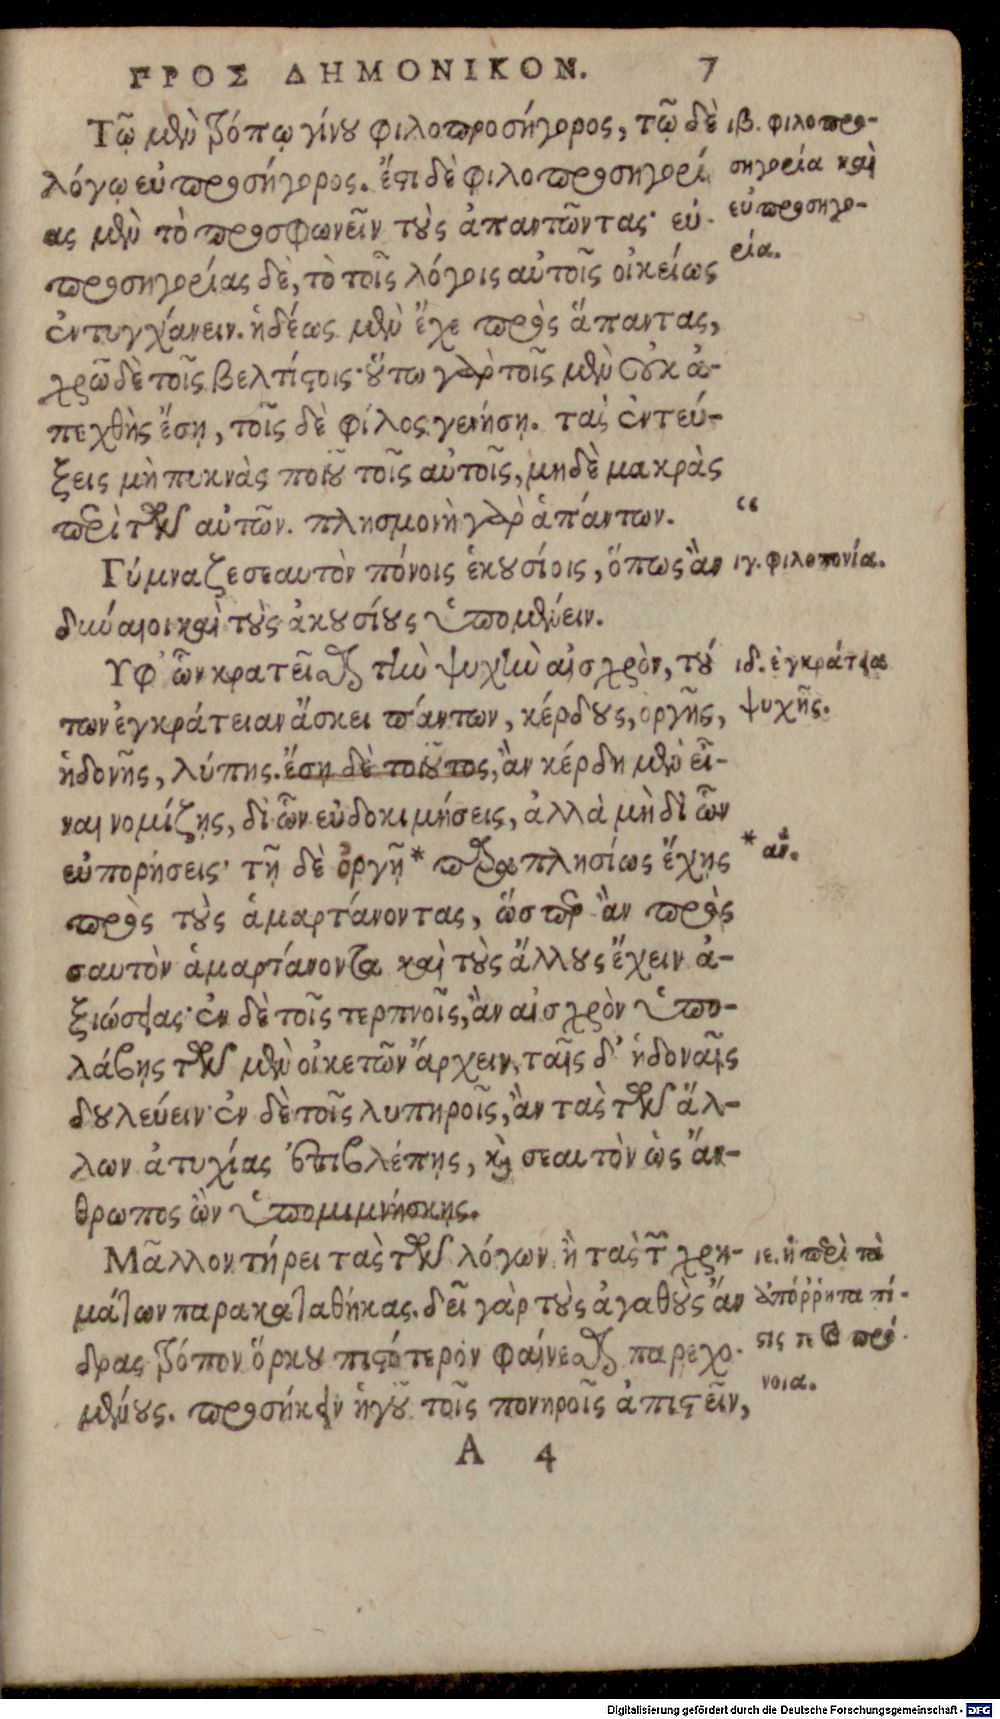 ΠΡΟΣ ΔΗΜΟΝΙΚΟΝ. 7
Τῷ μὲν τρόπῳ γίνου φιλοπροσήγορος, τῷ δὲ
λόγῳ εὐπροσήγορος. ἔστι δὲ φιλοπροσηγορί
ας μὲν τὸ προσφωνεῖν τοὺς ἀπαντῶντας· εὐ-
προσηγορίας δὲ, τὸ τοῖς λόγοις αὐτοῖς οἰκείως
ἐντυγχάνειν. ἡδέως μὲν ἔχε πρὸς ἅπαντας,
χρῶ δὲ τοῖς βελτίστοις· οὕτω γὰρ τοῖς μὲν οὐκ ἀ-
πεχθὴς ἔσῃ, τοῖς δὲ φίλος γενήσῃ. τὰς ἐντεύ-
ξεις μὴ πυκνὰς ποιοῦ τοῖς αὐτοῖς, μηδὲ μακρὰς
περὶ τῶν αὐτῶν. πλησμονὴ γὰρ ἁπάντων.
Γύμναζε σεαυτὸν πόνοις ἑκουσίοις, ὅπως ἂν
δύναιο καὶ τοὺς ἀκουσίους ὑπομένειν.
Ὑφ' ὧν κρατεῖσθαι τὴν ψυχὴν αἰσχρὸν, τού
των ἐγκράτειαν ἄσκει πάντων, κέρδους, ὀργῆς,
ἡδονῆς, λύπης. ἔσῃ δὲ τοιοῦτος, ἂν κέρδη μὲν εἶ-
ναι νομίζῃς, δι' ὧν εὐδοκιμήσεις, ἀλλὰ μὴ δι' ὧν
εὐπορήσεις· τῇ δὲ ὀργῇ * παραπλησίως ἔχῃς
πρὸς τοὺς ἁμαρτάνοντας, ὥσπερ ἂν πρὸς
σαυτὸν ἁμαρτάνοντα καὶ τοὺς ἄλλους ἔχειν ἀ-
ξιώσειας· ἐν δὲ τοῖς τερπνοῖς, ἂν αἰσχρὸν ὑπο-
λάβῃς τῶν μὲν οἰκετῶν ἄρχειν, ταῖς δ' ἡδοναῖς
δουλεύειν· ἐν δὲ τοῖς λυπηροῖς, ἂν τὰς τῶν ἄλ-
λων ἀτυχίας ἐπιβλέπῃς, καὶ σεαυτὸν ὡς ἄν-
θρωπος ὢν ὑπομιμνήσκῃς.
Μᾶλλον τήρει τὰς τῶν λόγων ἢ τὰς τῶν χρη-
μάτων παρακαταθήκας. δεῖ γὰρ τοὺς ἀγαθοὺς ἄν
δρας τρόπον ὅρκου πιστότερον φαίνεσθαι παρεχο-
μένους. προσήκειν ἡγοῦ τοῖς πονηροῖς ἀπιστεῖν,
Α 4
ιβ. φιλοπρο-
σηγορία καὶ
εὐπροσηγο-
ρία.
“
ιγ. φιλοπονία.
ιδ. ἐγκράτεια
ψυχῆς.
* ἂν.
ιε. ἡ περὶ τὰ
ἀπόῤῥητα πί-
στις τε καὶ πρό
νοια.
Digitalisierung gefördert durch die Deutsche Forschungsgemeinschaft - DFG